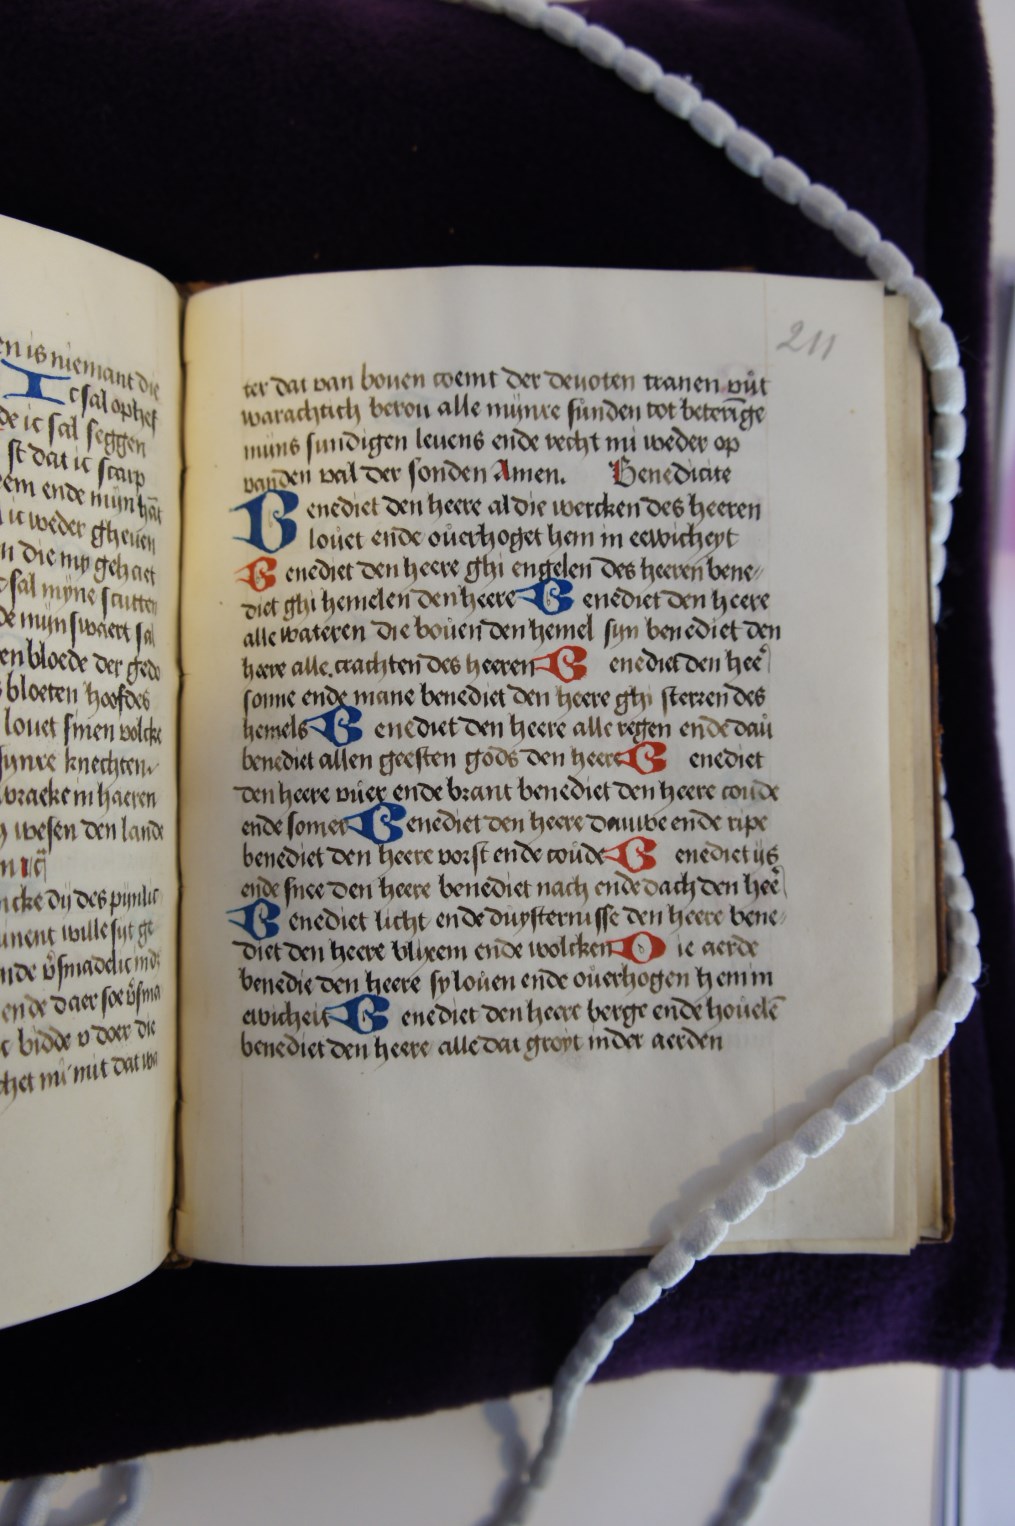 en is niemant die
Ic sal ophef
de ic sal seggen
st dat ic scarp
em ende mijn hāt
ic weder gheuen
n die my gehaet
sal myne scutten
de mijn swaert sal
en bloede der gede
bloeten hoofdes
louet sinen volcke
synre knechten
wraeke in haeren
wesen den lande
ncke dy des pynlic
unent wille syt ge
ende daer soe
bidde v doer die
chet mi mit dat wa
211
ter dat van bouen coemt der deuoten tranen vůt
warachtich berou alle mijnre sůnden tot beterīge
mijns sundigen leuens ende recht mi weder op
vanden val der sonden Amen. Benedicite
Benediet den heere al die wercken des heeren
louet ende ouerhoget hem in eewicheyt
Benediet den heere ghi engelen des heeren bene
diet ghi hemelen den heere Benediet den heere
alle wateren die bouen den hemel syn benediet den
heere alle crachten des heeren Benediet den hee
sonne ende mane benediet den heere ghi sterren des
hemels Benediet den heere alle regen ende dau
benediet allen geesten gods den heere Benediet
den heere vuer ende brant benediet den heere coude
ende somer Benediet den heere dauwe ende ripe
benediet den heere vorst ende coude Benediet ijs
ende snee den heere benediet nach ende dach den hee
Benediet licht ende duysternisse den heere bene
diet den heere blixem ende wolcken Die aerde
benedie den heere sy louen ende ouerhogen hem in
ewicheit Benediet den heere berge ende houelē
benediet den heere alle dat groyt inder aerden